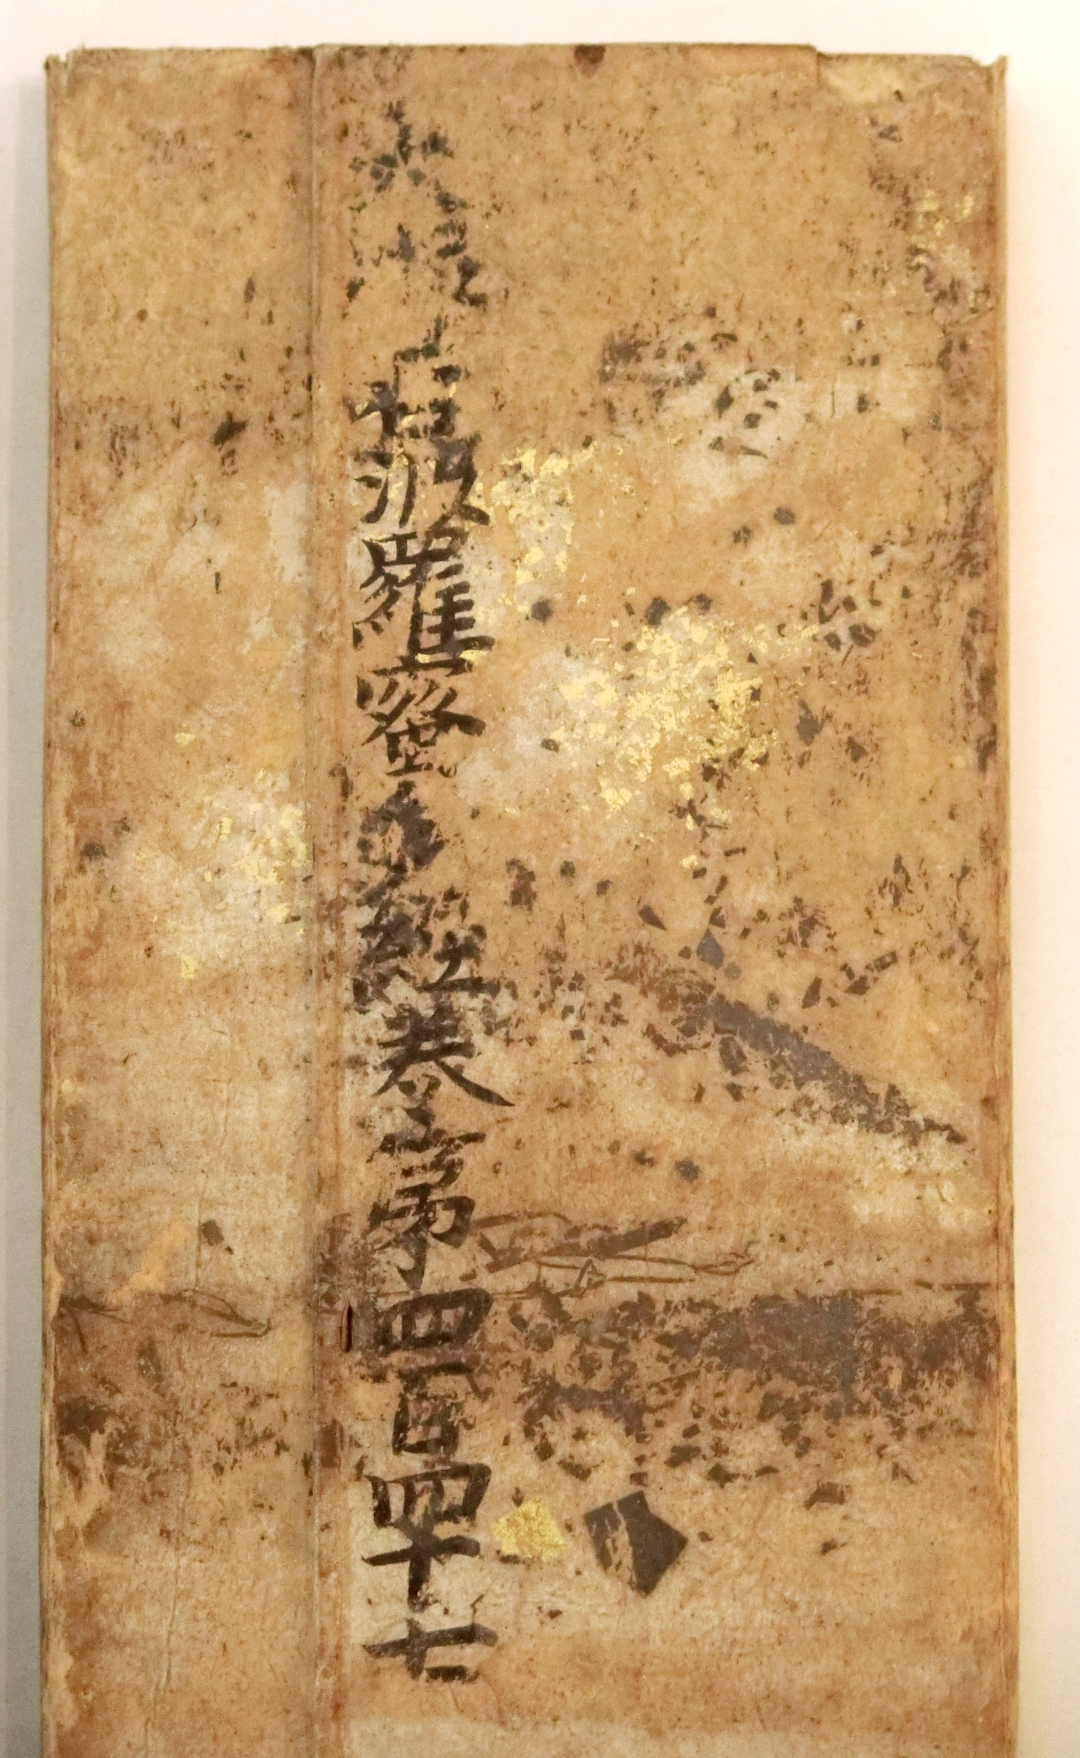 大般若波羅蜜多經卷第四百四十七